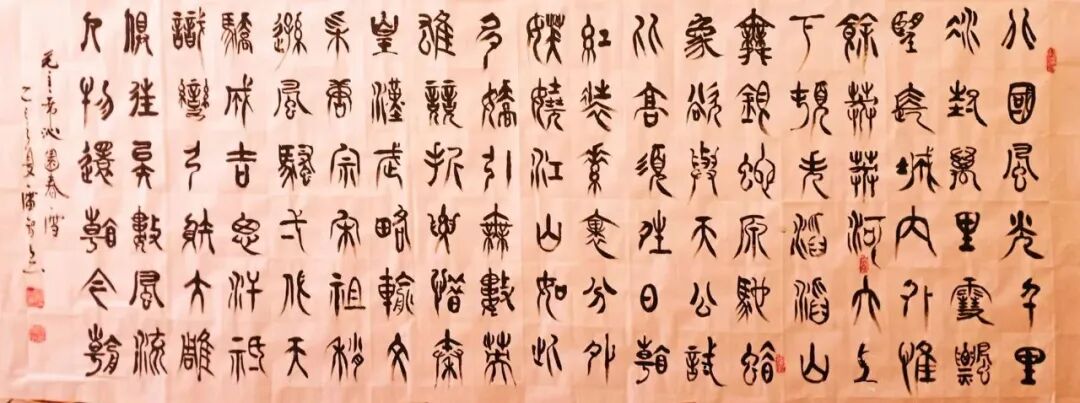 北國風光千里
冰封萬里雪飄
望長城內外惟
餘莽莽河大上
下頓失滔滔山
舞銀蛇原馳蠟
象欲與天公試
比高須晴日看
紅裝素裹分外
妖嬈江山如此
多嬌引無數英
雄競折腰惜秦
皇漢武略輸文
采唐宗宋祖稍
遜風騷一代天
驕成吉思汗祇
識彎弓射大雕
俱往矣數風流
人物還看今朝
毛主席沁園春雪
乙巳夏